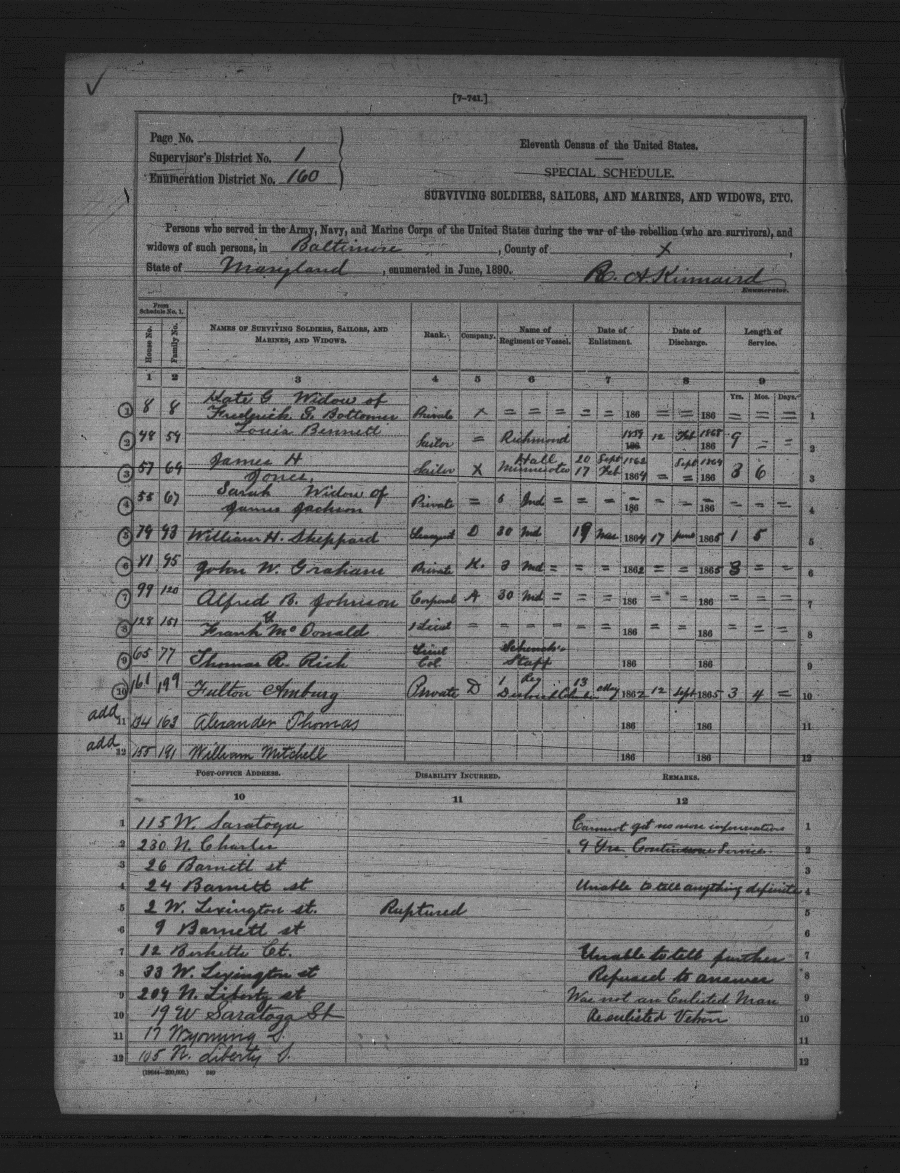 [7-741.]
Page No.
Supervisor's District No. 1
Enumeration District No. 160
Eleventh Census of the United States.
SPECIAL SCHEDULE.
SURVIVING SOLDIERS, SAILORS, AND MARINES, AND WIDOWS, ETC.
Persons who served in the Army, Navy, and Marine Corps of the United States during the war of the rebellion (who are survivors), and
widows of such persons, in Baltimore, County of X,
State of Maryland, enumerated in June, 1890. A. Kinnaird
Enumerator.
From Schedule No. 1.
House No. Family No. NAMES OF SURVIVING SOLDIERS, SAILORS, AND MARINES, AND WIDOWS. Rank. Company. Name of Regiment or Vessel. Date of Enlistment. Date of Discharge. Length of Service.
1 2 3 4 5 6 7 8 9
Yrs. Mos. Days.
1 8 8 Kate G Widow of
Frederick G. Bottomer Private X = = = = = 186 = = 186 = = = 1
2 48 54 Louis Bennett Sailor = Richmond 1859 186 12 Feb 1868 186 9 = = 2
3 57 69 James H Jones, Sailor X Hall Minnesota 20 Sept 1862 17 Feb 1864 = = Sept 1864 186 3 6 3
4 55 67 Sarah Widow of
James Jackson Private = 6 = = = 186 = = 186 = = = 4
5 79 93 William H. Sheppard Sergeant D 30 Md 19 Mar 1864 17 June 1865 1 5 5
6 81 95 John W. Graham Private K. 3 Md = = = 1862 = = 1865 3 = = 6
7 99 120 Alfred B. Johnson Corporal A 30 Md = = = 186 = = 186 = = = 7
8 128 151 Frank McDonald 1 Lieut = = = = = 186 = = 186 = = = 8
9 65 77 Thomas R. Rich Lieut Col. Schenck's Staff 186 186 9
10 161 199 Fulton Amburg Private D 1 Reg District 13 May 1862 12 Sept 1865 3 4 = 10
add 11 134 163 Alexander Thomas 186 186 11
add 12 155 191 William Mitchell 186 186 12
POST-OFFICE ADDRESS. DISABILITY INCURRED. REMARKS.
10 11 12
1 115 W. Saratoga Cannot get no more information 1
2 230 N. Charles 9 Yrs Continuous Service. 2
3 26 Barnett st 3
4 24 Barnett st Unable to tell anything definite 4
5 2 W. Lexington st. Ruptured 5
6 9 Barnett st 6
7 12 Ct. Unable to tell further 7
8 33 W. Lexington st Refused to answer 8
9 209 N. Liberty st Was not an Enlisted Man 9
10 19 W Saratoga St Reenlisted 10
11 17 Wyoming S. 11
12 105 N. Liberty S. 12